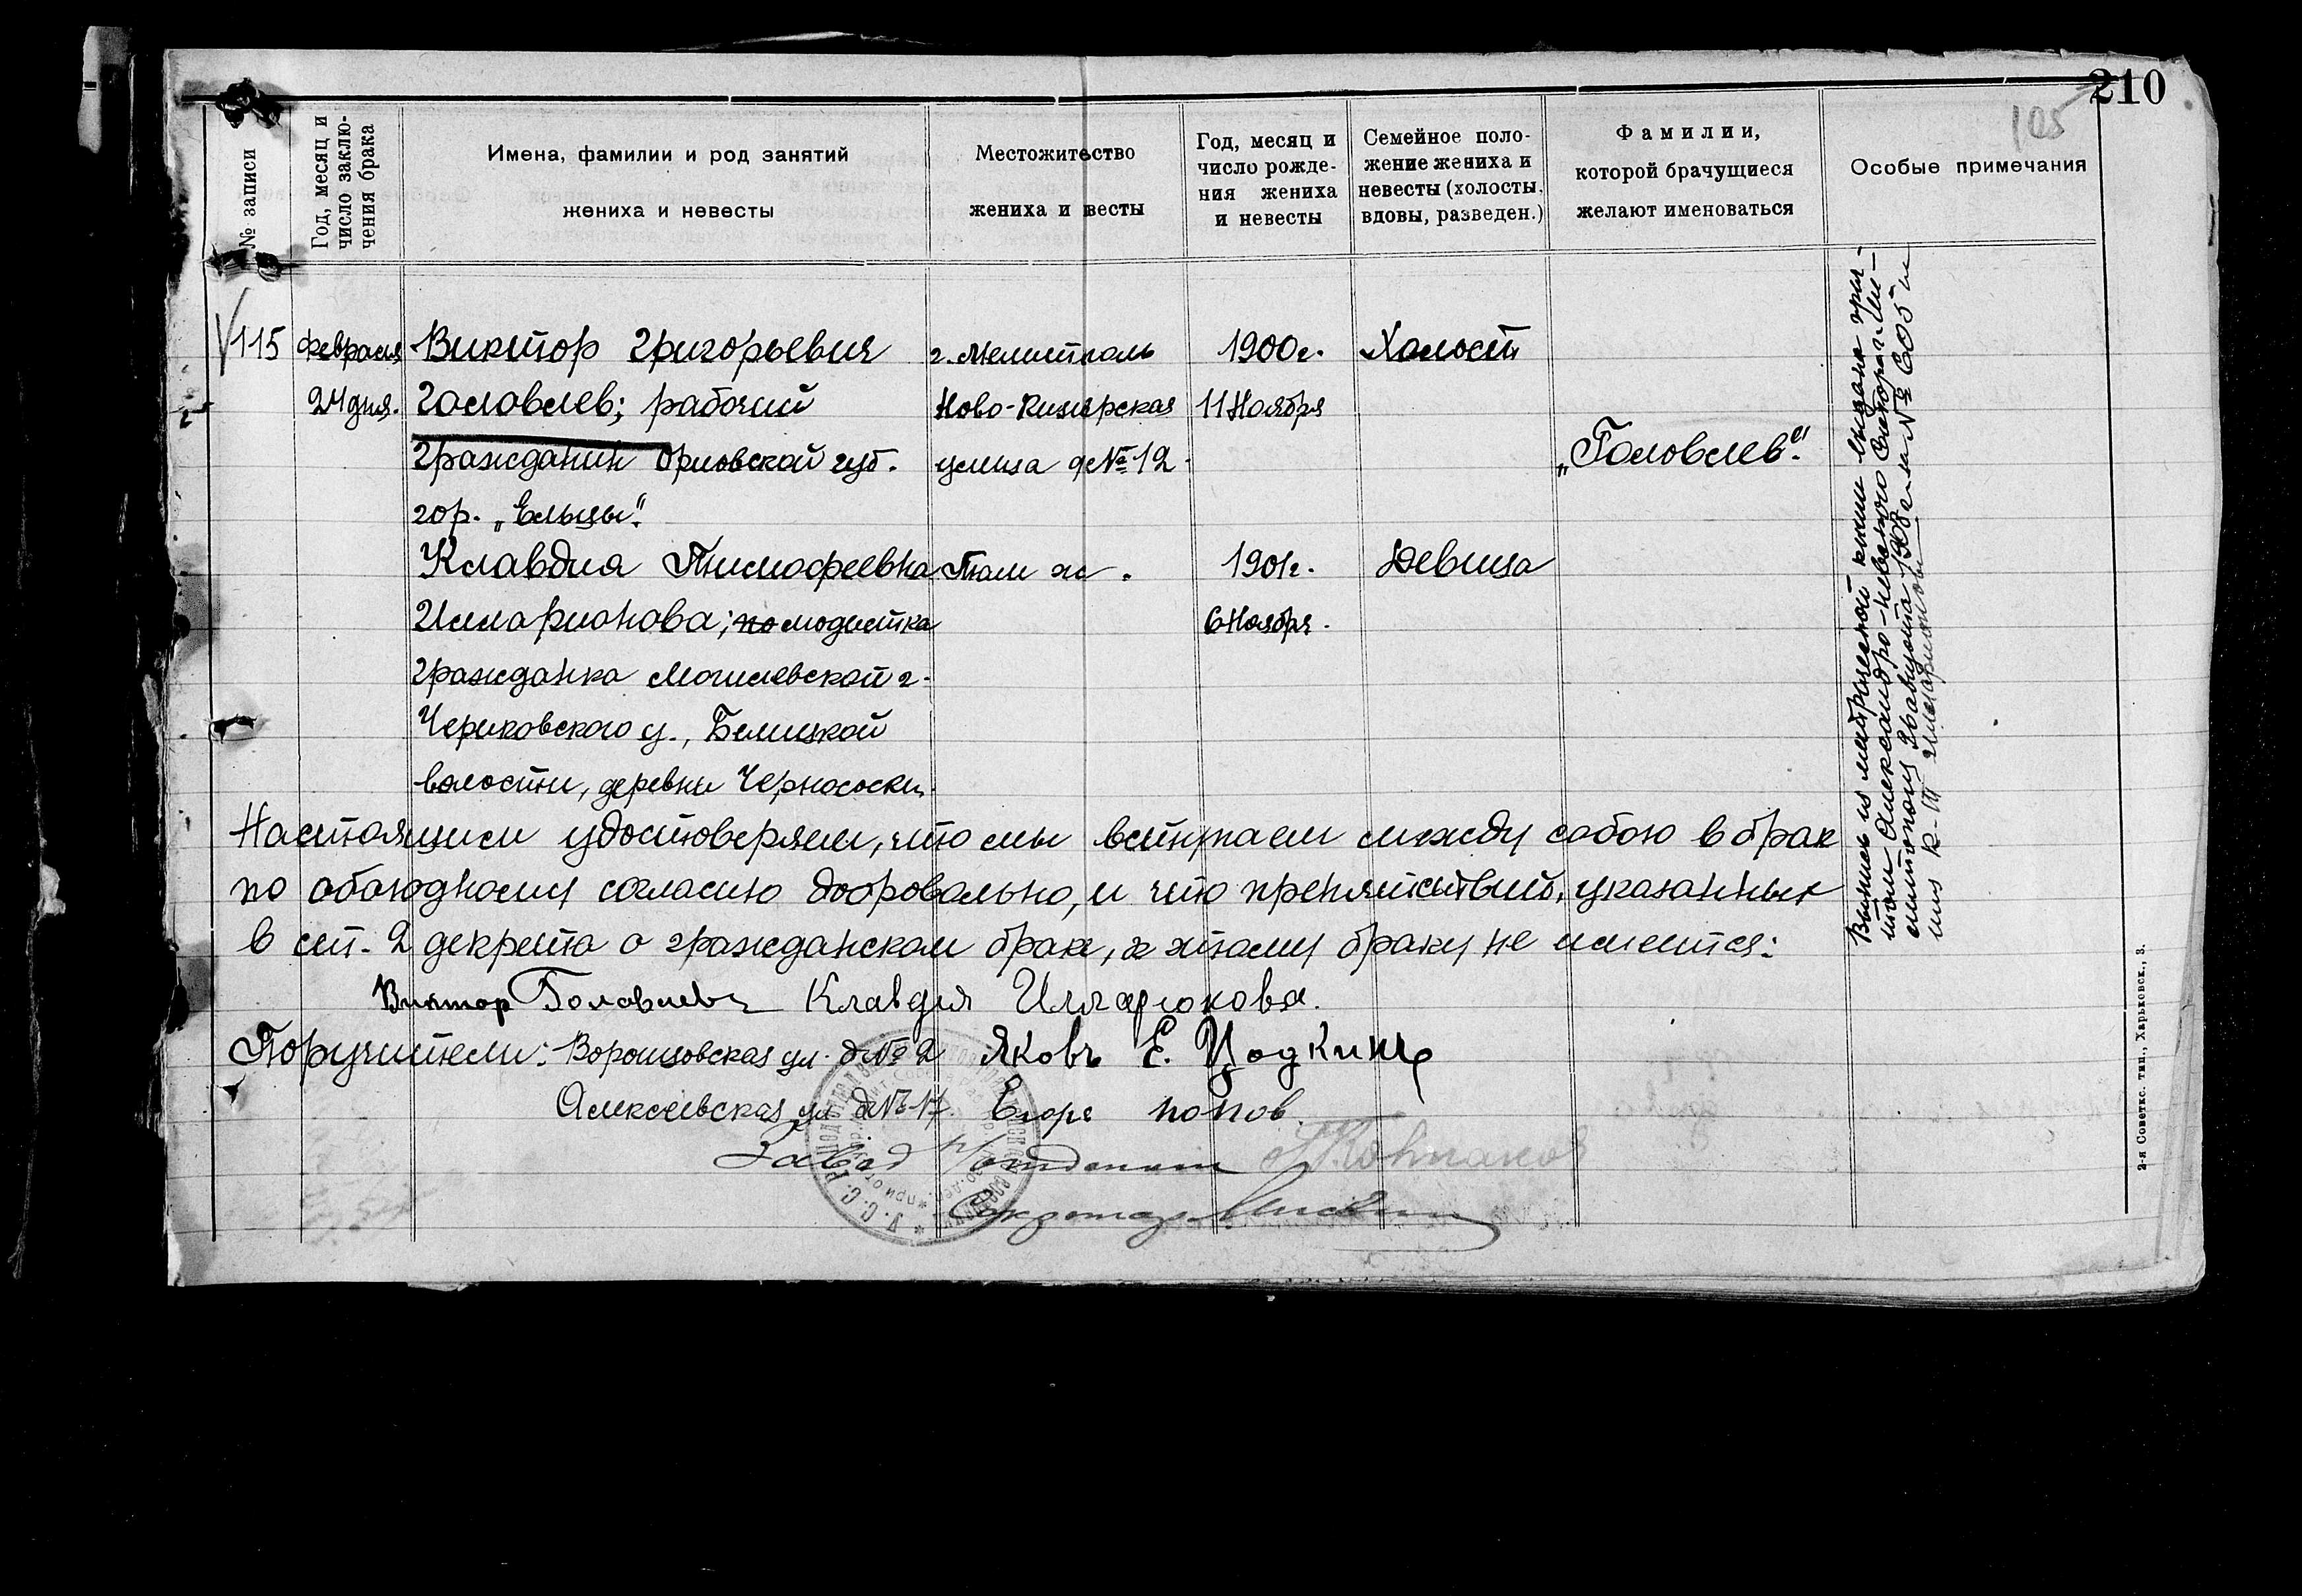 210
105
№ записи
Год, месяц и
число заклю-
чения брака
Имена, фамилии и род занятий
жениха и невесты
Местожительство
жениха и невесты
Год, месяц и
число рожде-
ния жениха
и невесты
Семейное поло-
жение жениха и
невесты (холосты,
вдовы, разведен.)
Фамилии,
которой брачущиеся
желают именоваться
Особые примечания
115 февраля Виктор Григорьевич г. Мелитополь 1900г. Холост
24 дня. Головлев; рабочий Ново-Кизярская 11 Ноября
гражданин Орловской губ. улица д№ 12. „Головлев“.
гор. „Ельцы“.
Клавдия Тимофеевна Там ж. 1901г. Девица
Илларионова; по модистка 6 Ноября.
гражданка Могилевской г.
Чериковского у., Белицкой
волости, деревни Чернососки.
Настоящим удостоверяем, что мы вступаем между собою в брак
по обоюдному согласию добровольно, и что препятствий, указанных
в ст. 2 декрета о гражданском браке, к этому браку не имеется:
Виктор Головлевъ Клавдия Илларионова.
Поручители: Воронцовская ул. д№ 2 Яковъ Е. Цодкинъ
Алексеевская ул. д№ 17 Егоре Попов.
Завед п/отделом
Секретарь
Выпись из метрической книги выдана
Александро-Невского
1908 г. за № 605
Илларионовы
2-я Советск. тип., Харьковск., 3.